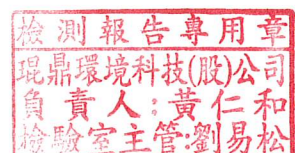 檢測報告專用章
琨鼎環境科技(股)公司
負責人:黃仁和
檢驗室主管:劉易松